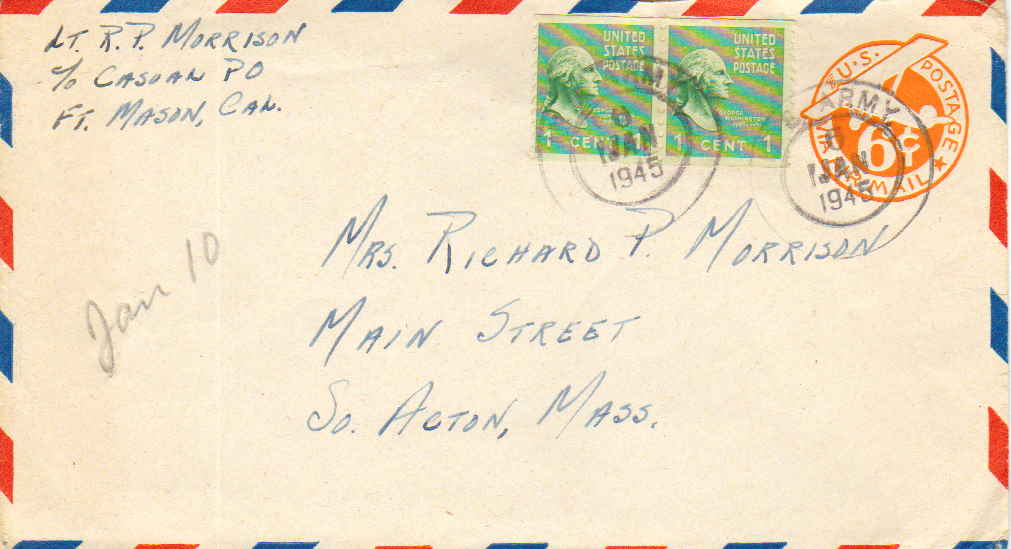 LT. R. P. MORRISON
c/o CASUAL PO
FT. MASON, CAL.
UNITED STATES POSTAGE
1 CENT 1
UNITED STATES POSTAGE
GEORGE WASHINGTON
1 CENT 1
U.S. POSTAGE
VIA AIR MAIL
6¢
ARMY
JAN
1945
ARMY
JAN
1945
MRS. RICHARD P. MORRISON
MAIN STREET
SO. ACTON, MASS.
Jan 10